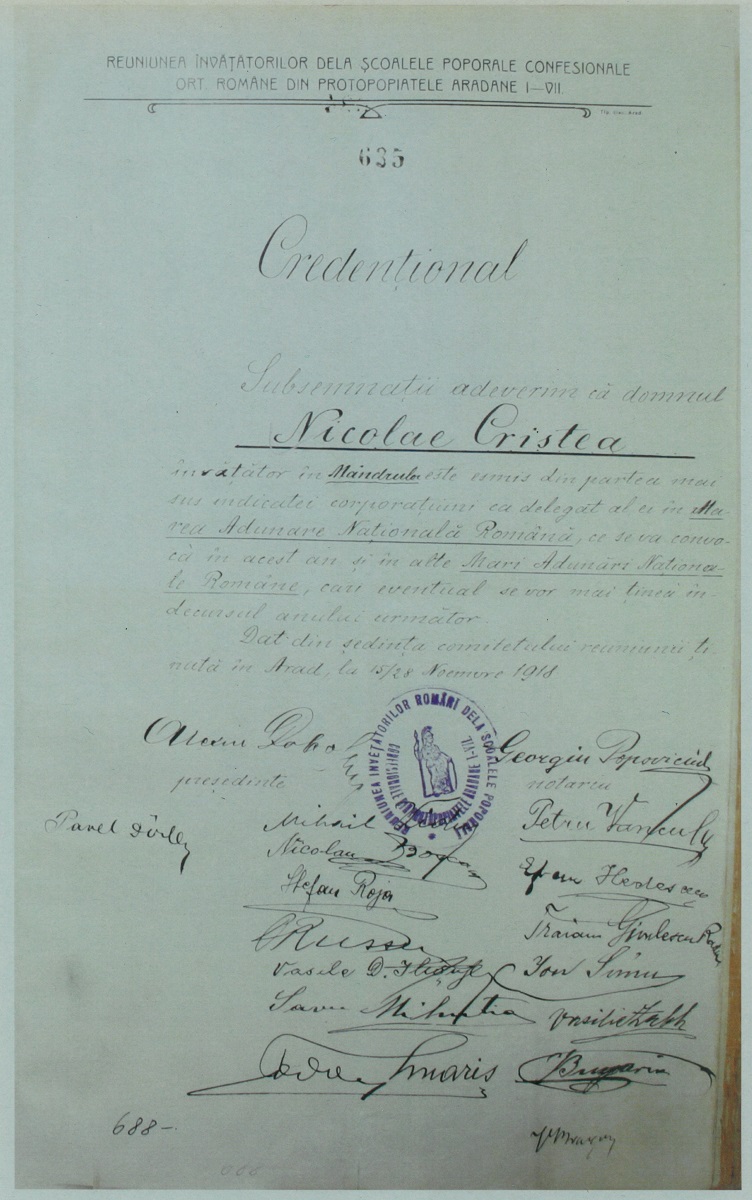 REUNIUNEA ÎNVĂȚĂTORILOR DELA ȘCOALELE POPORALE CONFESIONALE
ORT. ROMÂNE DIN PROTOPOPIATELE ARADANE I—VII.
635
Credențional
Subsemnații adeverim că domnul
Nicolae Cristea
învățător în Mândruloc este esmis din partea mai
sus indicatei corporațiuni ca delegat al ei în Ma-
rea Adunare Națională Română, ce se va convo-
că în acest an și în alte Mari Adunări Naționa-
le Române, cari eventual se vor mai ținea în-
decursul anului următor.
Dat din ședința comitetului reuniunii ți-
nută în Arad, la 15/28 Noemvre 1918
REUNIUNEA INVĂȚĂTORILOR ROMÂNI DELA ȘCOALELE POPORALE
Georgiu Popoviciu
președinte
notariu
Pavel
Mihail
Petru
Nicolau
Ștefan Roja
Russu
Traian Givulescu
Vasile D.
Ion Simu
Savu
Vasilie
688-